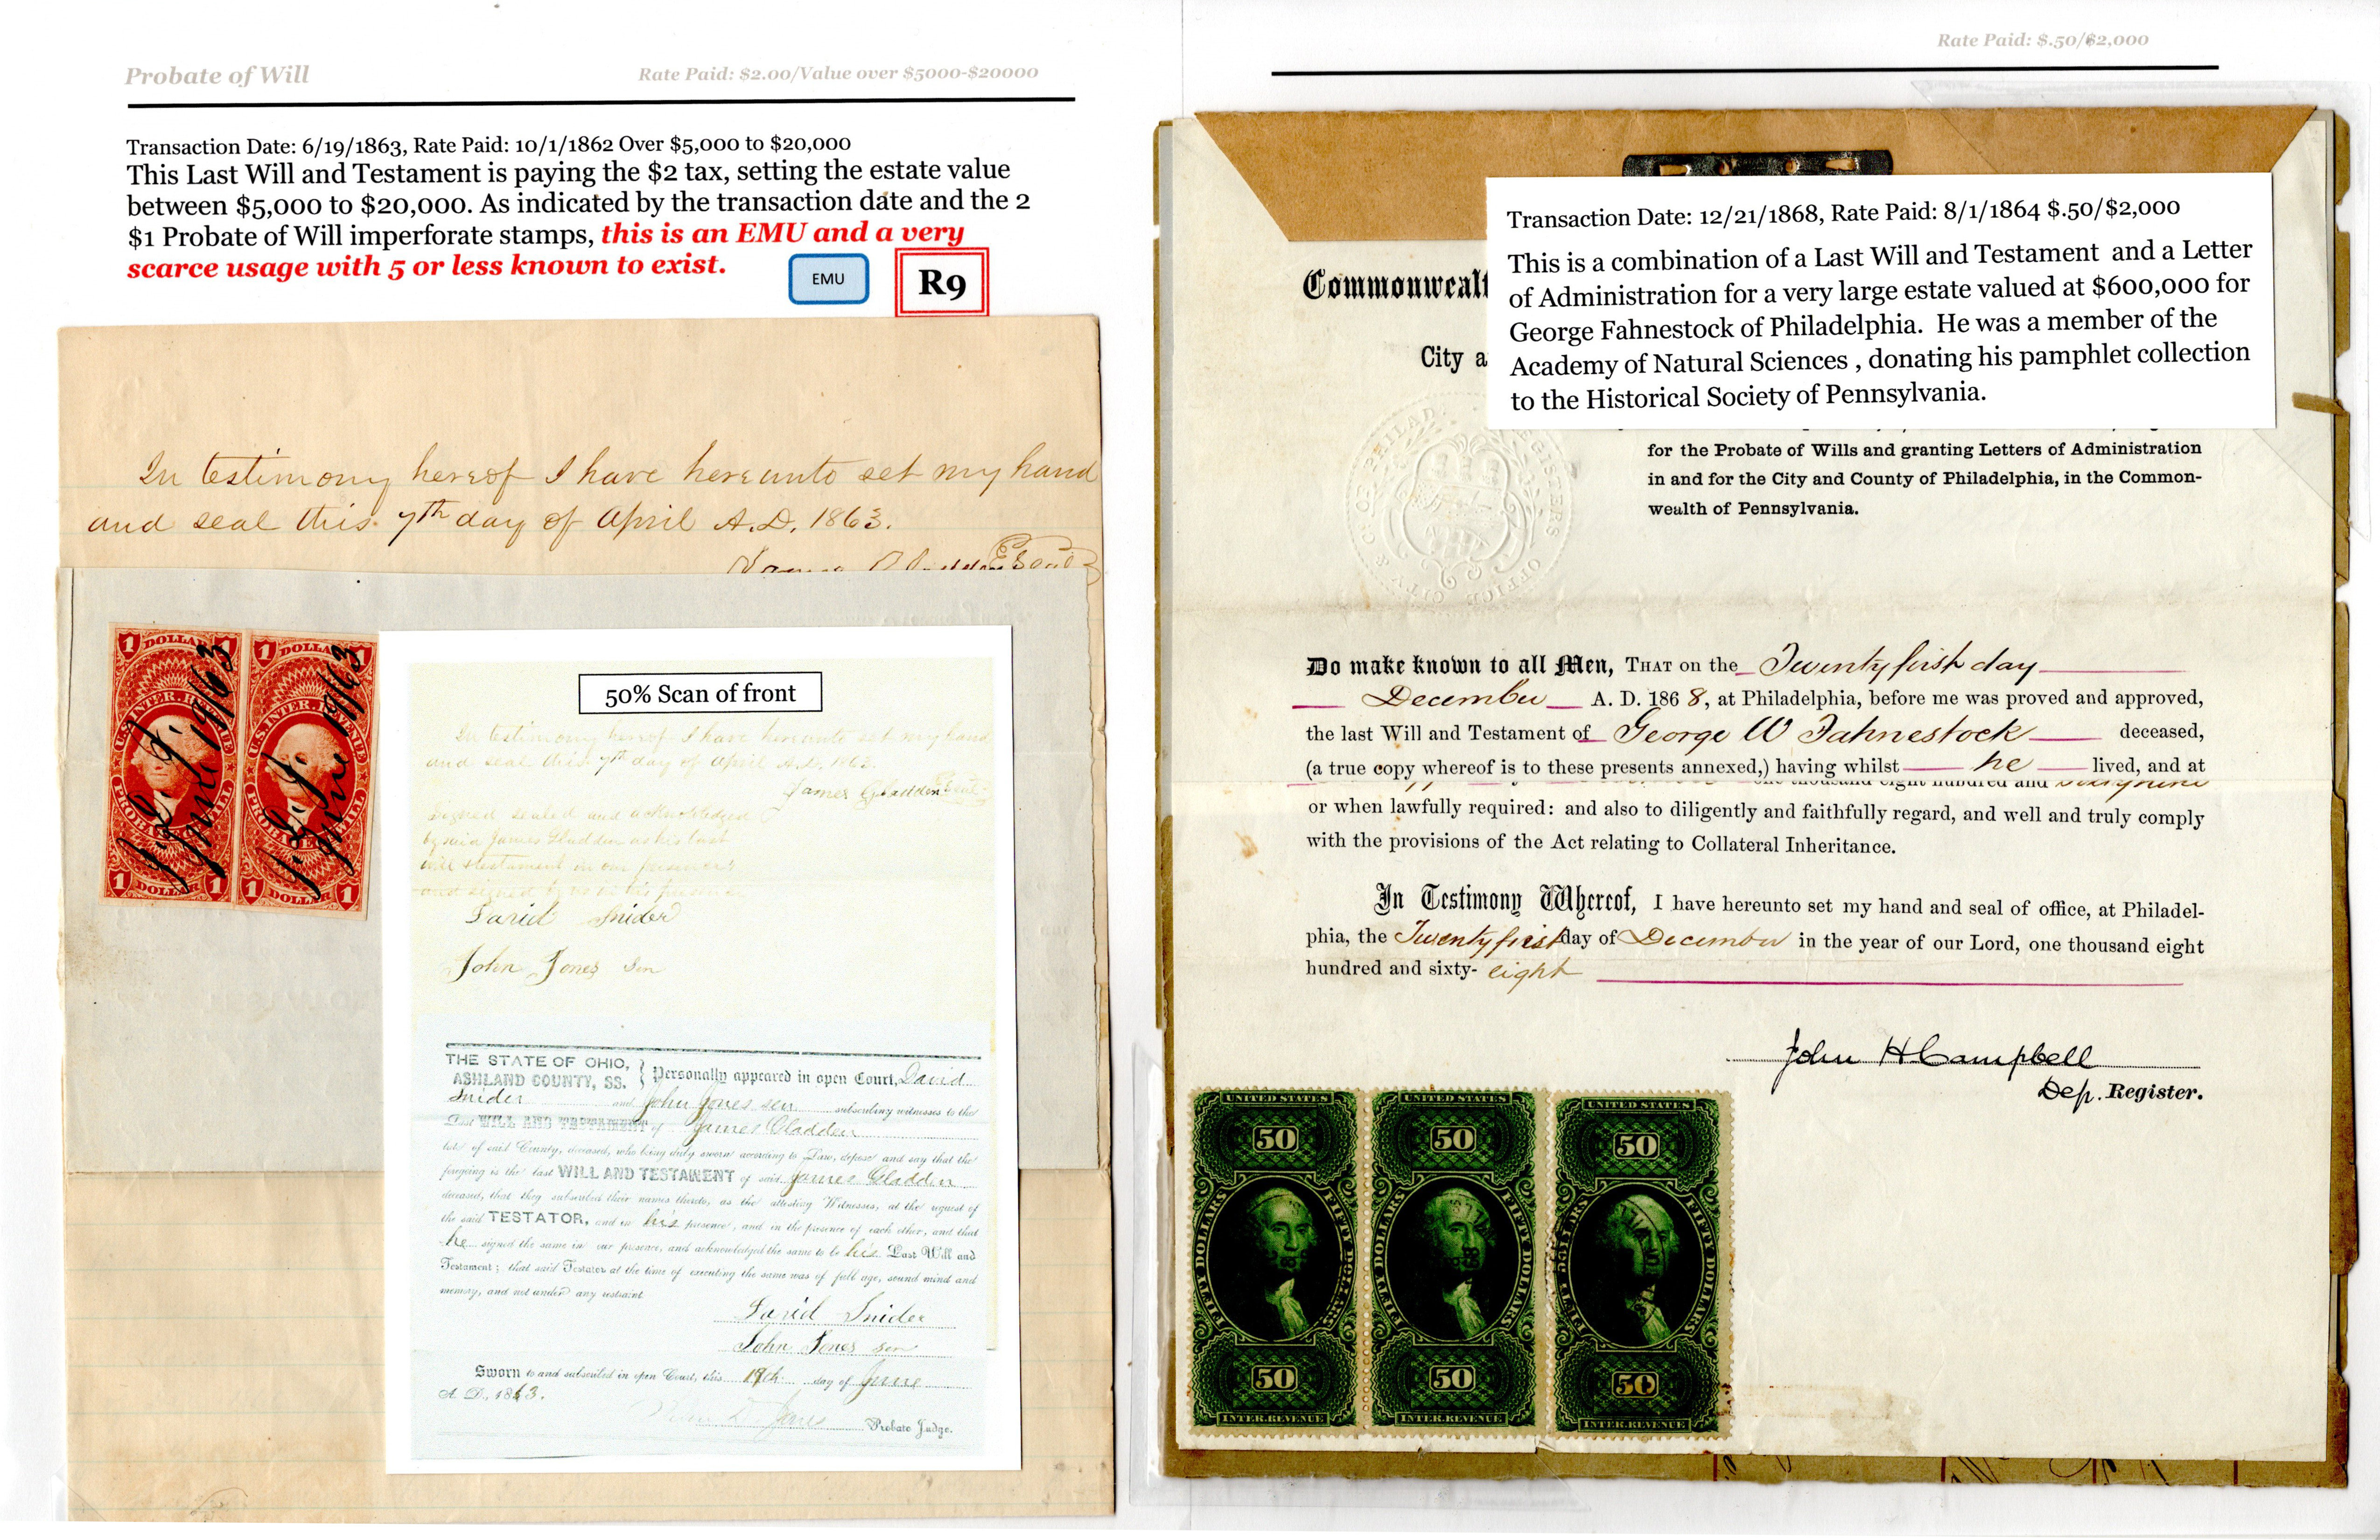 Probate of Will
Rate Paid: $2.00/Value over $5000-$20000
Transaction Date: 6/19/1863, Rate Paid: 10/1/1862 Over $5,000 to $20,000
This Last Will and Testament is paying the $2 tax, setting the estate value
between $5,000 to $20,000. As indicated by the transaction date and the 2
$1 Probate of Will imperforate stamps, this is an EMU and a very
scarce usage with 5 or less known to exist.
EMU
R9
In testimony hereof I have hereunto set my hand
and seal this 7th day of April A.D. 1863.
1 DOLLAR 1
U.S. INTER. REVENUE
PROBATE OF WILL
1 DOLLAR 1
1 DOLLAR 1
U.S. INTER. REVENUE
PROBATE OF WILL
1 DOLLAR 1
June 19/63
June 19/63
50% Scan of front
In testimony hereof I have hereunto set my hand
and seal this 7th day of April A.D. 1863.
James Gladden Seal
Signed sealed and acknowledged
by said James Gladden as his last
will & testament in our presence
and signed by us in his presence
David Snider
John Jones sen
THE STATE OF OHIO,
ASHLAND COUNTY, SS.
Personally appeared in open Court, David
Snider and John Jones sen subscribing witnesses to the
Last WILL AND TESTAMENT of James Gladden
late of said County, deceased, who being duly sworn according to Law, depose and say that the
foregoing is the last WILL AND TESTAMENT of said James Gladden
deceased, that they subscribed their names thereto, as the attesting Witnesses, at the request of
the said TESTATOR, and in his presence, and in the presence of each other, and that
he signed the same in our presence, and acknowledged the same to be his Last Will and
Testament; that said Testator at the time of executing the same was of full age, sound mind and
memory, and not under any restraint.
David Snider
John Jones sen
Sworn to and subscribed in open Court, this 19th day of June
A. D., 1863.
Jones Probate Judge.
Rate Paid: $.50/$2,000
Transaction Date: 12/21/1868, Rate Paid: 8/1/1864 $.50/$2,000
This is a combination of a Last Will and Testament and a Letter
of Administration for a very large estate valued at $600,000 for
George Fahnestock of Philadelphia. He was a member of the
Academy of Natural Sciences , donating his pamphlet collection
to the Historical Society of Pennsylvania.
Commonwealt
City a
for the Probate of Wills and granting Letters of Administration
in and for the City and County of Philadelphia, in the Common-
wealth of Pennsylvania.
Do make known to all Men, THAT on the Twenty first day
December A. D. 1868, at Philadelphia, before me was proved and approved,
the last Will and Testament of George W Fahnestock deceased,
(a true copy whereof is to these presents annexed,) having whilst he lived, and at
one thousand eight hundred and sixty nine
or when lawfully required: and also to diligently and faithfully regard, and well and truly comply
with the provisions of the Act relating to Collateral Inheritance.
In Testimony Whereof, I have hereunto set my hand and seal of office, at Philadel-
phia, the Twenty first day of December in the year of our Lord, one thousand eight
hundred and sixty- eight
John H Campbell
Dep. Register.
UNITED STATES
50
FIFTY DOLLARS
FIFTY DOLLARS
50
INTER. REVENUE
UNITED STATES
50
FIFTY DOLLARS
FIFTY DOLLARS
50
INTER. REVENUE
UNITED STATES
50
FIFTY DOLLARS
FIFTY DOLLARS
50
INTER. REVENUE